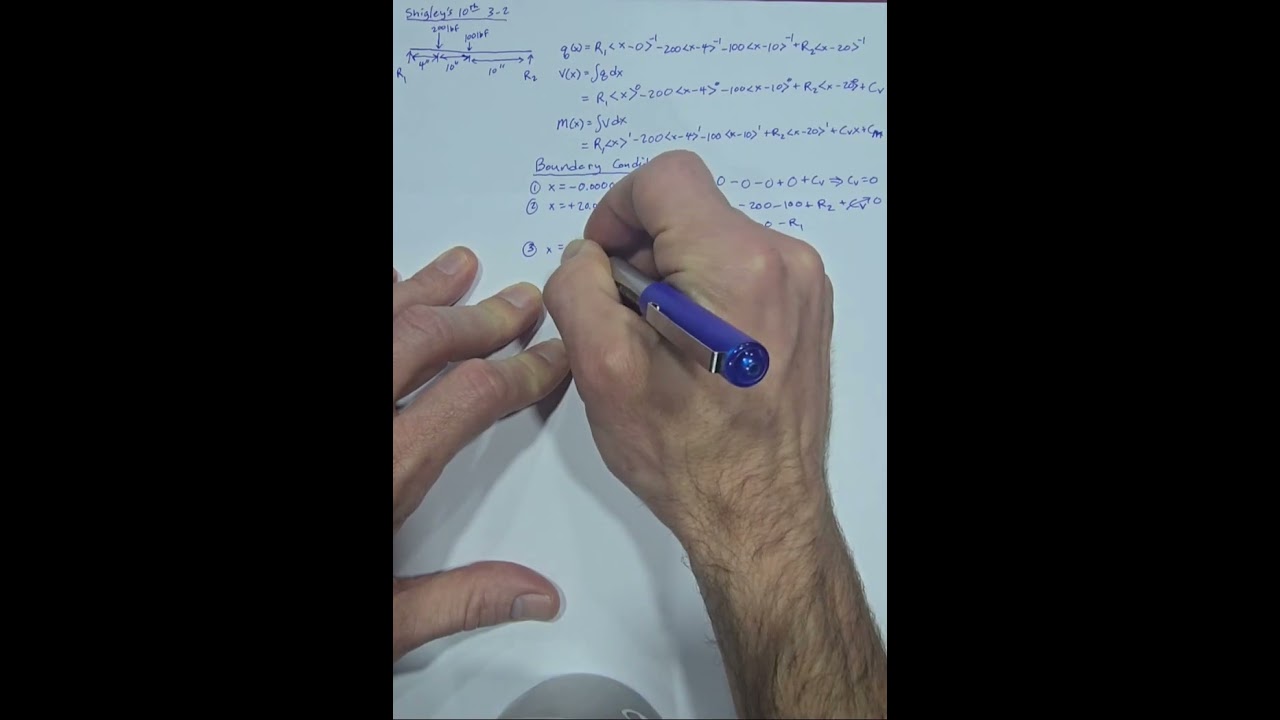 Shigley's 10th 3-2
200 lbf
100 lbf
4" 10" 10"
R₁ R₂
q(x) = R₁<x-0>⁻¹-200<x-4>⁻¹-100<x-10>⁻¹+R₂<x-20>⁻¹
V(x) = ∫q dx
= R₁<x>⁰-200<x-4>⁰-100<x-10>⁰+R₂<x-20>⁰+Cv
M(x) = ∫V dx
= R₁<x>¹-200<x-4>¹-100<x-10>¹+R₂<x-20>¹+Cvx+Cm
Boundary
① x=-0.000 0-0-0+0+Cv ⇒ Cv=0
② x=+20.0 -200-100+R₂+Cv→0
0-R₁
③ x=